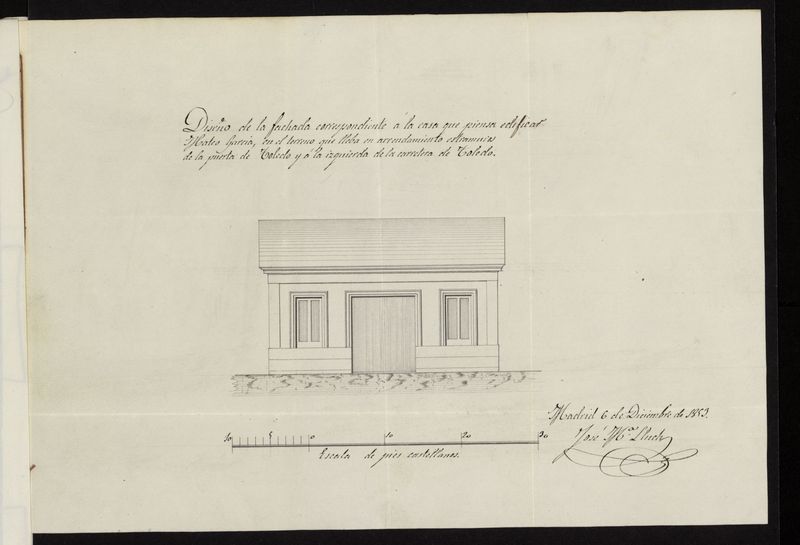 Diseño de la fachada correspondiente á la casa que piensa edificar
Mateo Garcia, en el terreno que lleba en arrendamiento estramuros
de la puerta de Toledo y á la izquierda de la carretera de Toledo.
Madrid 6 de Diciembre de 1853.
José Mª Lluch
10 5 0 10 20 30
Escala de pies castellanos.